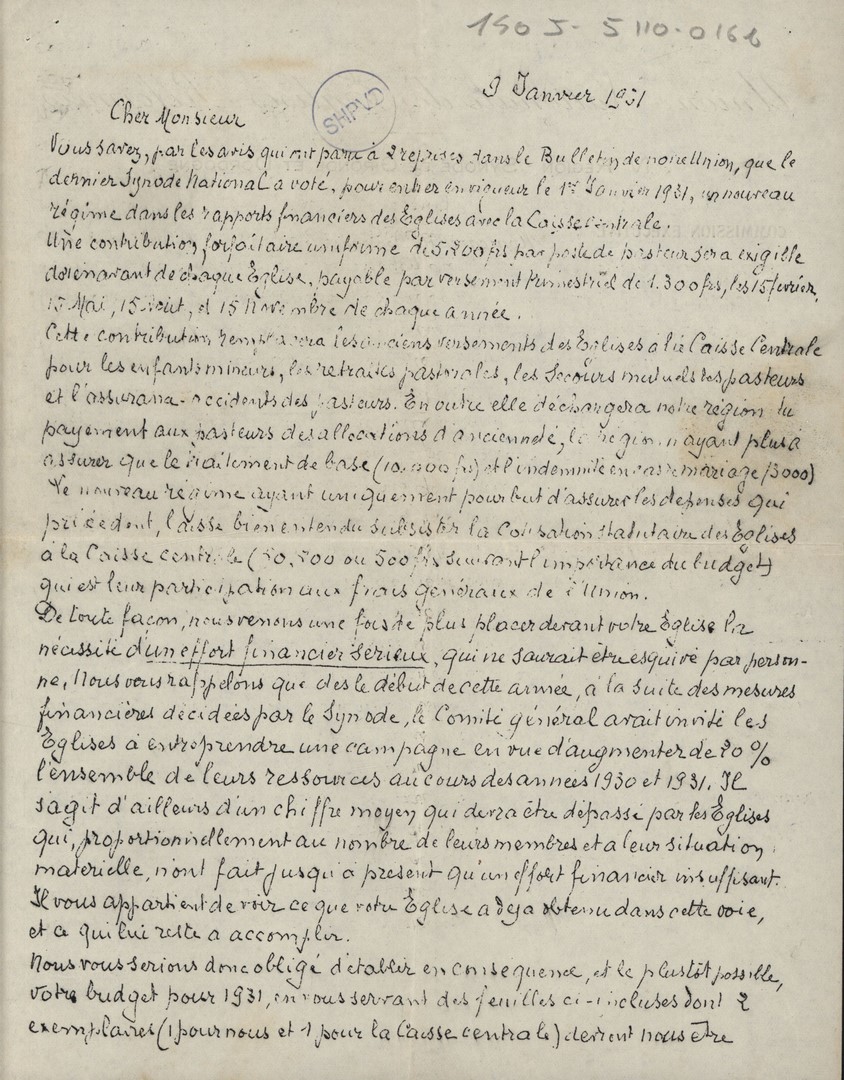 150 J- 5 110-016b
9 Janvier 1931
SHPVD
Cher Monsieur
Vous savez, par les avis qui ont paru à 2 reprises dans le Bulletin de notre Union, que le
dernier Synode National a voté, pour entrer en vigueur le 1er Janvier 1931, un nouveau
régime dans les rapports financiers des Eglises avec la Caisse Centrale.
Une contribution forfaitaire uniforme de 5.200 frs par poste de pasteur sera exigible
dorénavant de chaque Eglise, payable par versement trimestriel de 1.300 frs, les 15 février,
15 Mai, 15 Aout, et 15 Novembre de chaque année.
Cette contribution remplacera les anciens versements des Eglises à la Caisse Centrale
pour les enfants mineurs, les retraites pastorales, les Secours mutuels des pasteurs
et l'assurance-accidents des pasteurs. En outre elle déchargera notre région du
payement aux pasteurs des allocations d'ancienneté, la région n'ayant plus à
assurer que le traitement de base (10.000 frs) et l'indemnité en cas de mariage (3000)
Le nouveau régime ayant uniquement pour but d'assurer les dépenses qui
précèdent, laisse bien entendu subsister la Cotisation statutaire des Eglises
à la Caisse centrale ( ou 500 frs suivant l'importance du budget)
qui est leur participation aux frais généraux de l'Union.
De toute façon, nous venons une fois de plus placer devant votre Eglise la
nécessité d'un effort financier sérieux, qui ne saurait être esquivé par person-
ne. Nous vous rappelons que dès le début de cette année, à la suite des mesures
financières décidées par le Synode, le Comité général avait invité les
Eglises à entreprendre une campagne en vue d'augmenter de 20 %
l'ensemble de leurs ressources au cours des années 1930 et 1931. Il
s'agit d'ailleurs d'un chiffre moyen qui devra être dépassé par les Eglises
qui, proportionnellement au nombre de leurs membres et à leur situation
matérielle, n'ont fait jusqu'à présent qu'un effort financier insuffisant.
Il vous appartient de voir ce que votre Eglise a déjà obtenu dans cette voie,
et ce qui lui reste à accomplir.
Nous vous serions donc obligé d'établir en conséquence, et le plustôt possible,
votre budget pour 1931, en vous servant des feuilles ci-incluses dont 2
exemplaires (1 pour nous et 1 pour la Caisse centrale) devront nous être